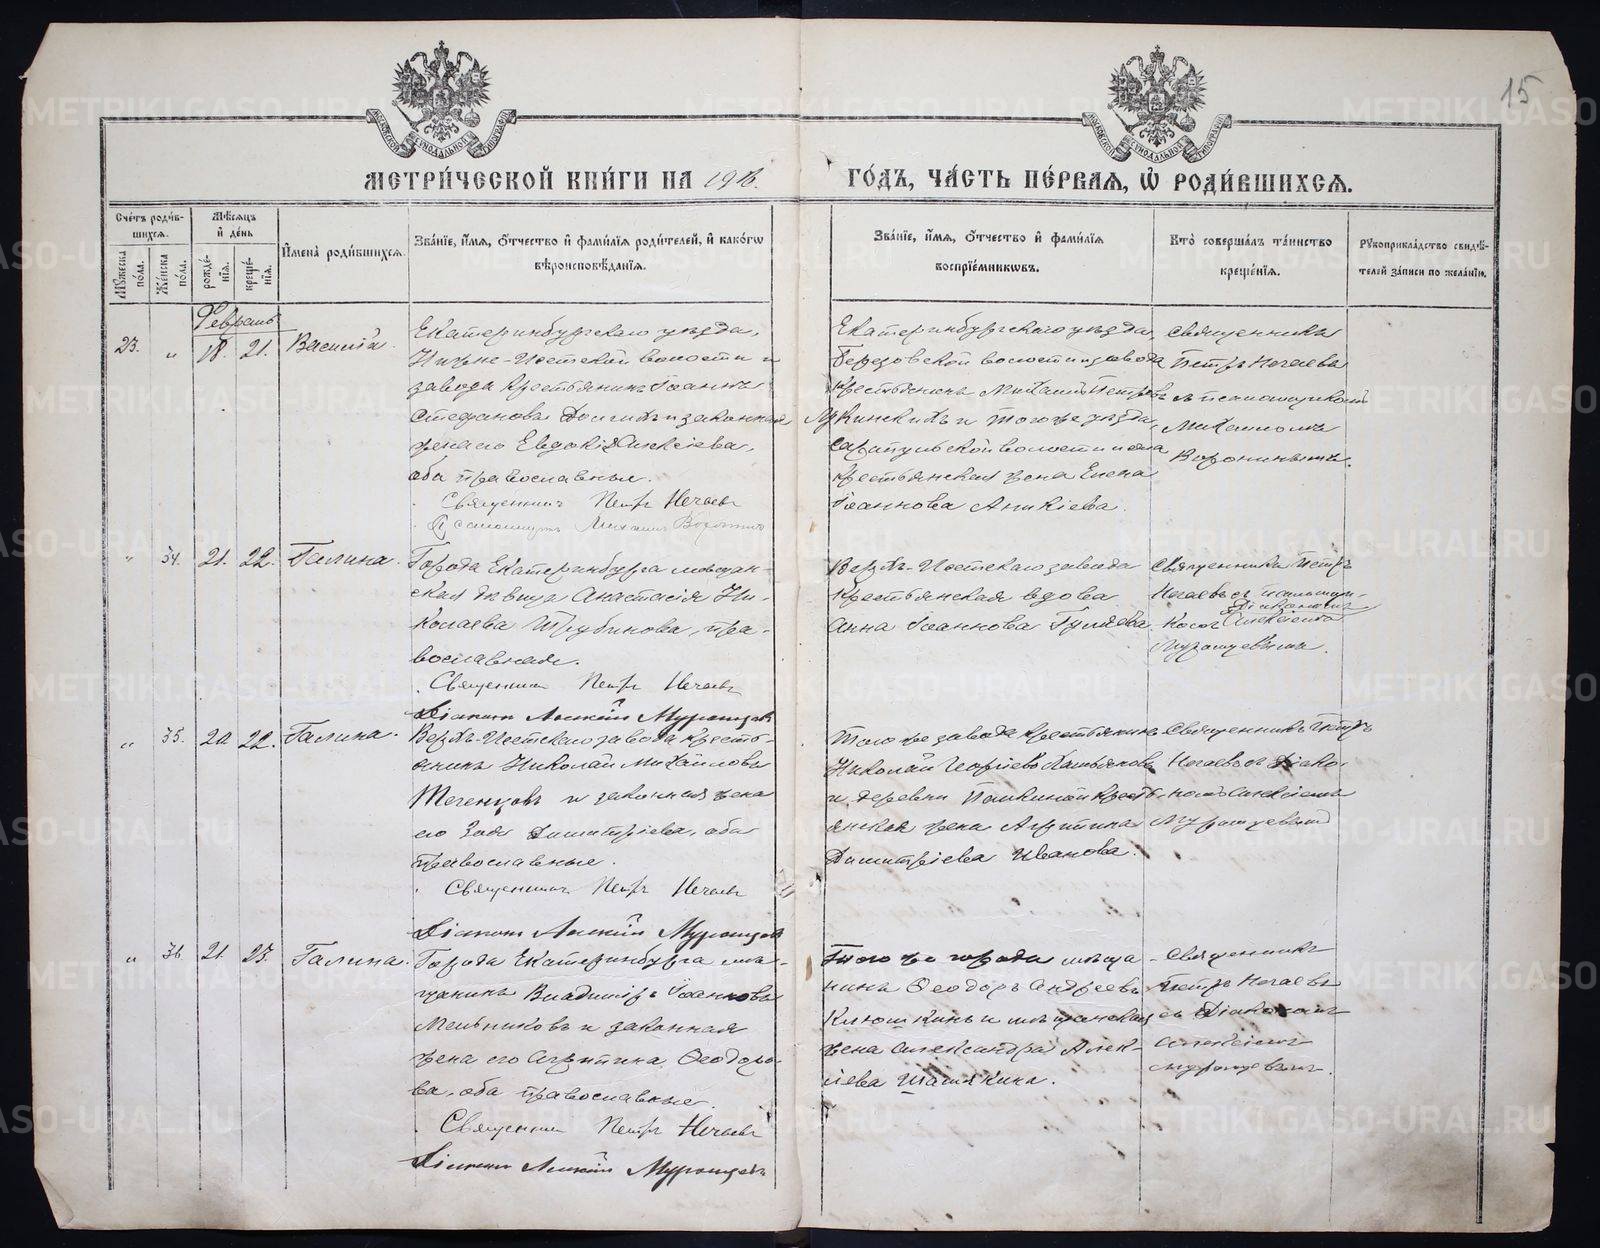 15
МЕТРИ́ЧЕСКОЙ КНИ́ГИ НА 1916. ГО́ДЪ, ЧА́СТЬ ПЕ́РВАЯ, Ѡ РОДИ́ВШИХСЯ.
Сче́тъ роди́вшихся.
Мꙋ́жеска по́ла.
Же́нска по́ла.
Мѣ́сяцъ и҆ де́нь
рожде́нїя.
креще́нїя.
И҆мена̀ роди́вшихся.
Зва́нїе, и҆́мя, о҆́тчество и҆ фами́лїя роди́телей, и҆ како́гѡ вѣроисповѣ́данїя.
Зва́нїе, и҆́мя, о҆́тчество и҆ фами́лїя воспрїе́мникѡвъ.
Кто̀ соверша́лъ та́инство креще́нїя.
Рꙋкоприкла́дство свидѣ́телей за́писи по жела́нїю.
Февраль
23. " 18. 21. Василій.
Екатеринбургскаго уѣзда,
Нижне-Исетской волости и
завода крестьянинъ Іоаннъ
Стефановъ и законная
жена его Евдокія Алексіева,
оба православные.
Священникъ Петръ Нечаевъ
Псаломщикъ Михаилъ Воронинъ
Екатеринбургскаго уѣзда,
Березовской волости и завода
крестьянинъ Михаилъ Петровъ
и того же уѣзда,
волости и села
крестьянская жена Елена
Іоаннова Аникіева.
Священникъ
Петръ Нечаевъ
съ псаломщикомъ
Михаиломъ
Воронинымъ.
" 34. 21. 22. Галина.
Города Екатеринбурга мѣщан-
ская дѣвица Анастасія Ни-
колаева Трубинова, пра-
вославная.
Священникъ Петръ Нечаевъ
Діаконъ Алексій Муромцевъ
Верхъ-Исетскаго завода
крестьянская вдова
Анна Іоаннова Гуляева.
Священникъ Петръ
Нечаевъ съ
Діакономъ
Алексіемъ
Муромцевымъ.
" 35. 20 22. Галина.
Верхъ-Исетскаго завода кресть-
янинъ Николай Михайловъ
и законная жена
его Зоя Димитріева, оба
православные.
Священникъ Петръ Нечаевъ
Діаконъ Алексій Муромцевъ
Того же завода крестьянинъ
Николай Георгіевъ
и деревни крестьянская жена Агрипина
Димитріева Иванова.
Священникъ Петръ
Нечаевъ съ Діако-
номъ Алексіемъ
Муромцевымъ
" 36. 21. 23. Галина.
Города Екатеринбурга мѣ-
щанинъ Владиміръ Іоанновъ
Мельниковъ и законная
жена его Агрипина Ѳеодоро-
ва, оба православные.
Священникъ Петръ Нечаевъ
Діаконъ Алексій Муромцевъ
Того же города мѣща-
нинъ Ѳеодоръ Андреевъ
Клюшкинъ и мѣщанская
жена Александра Алек-
сіева Шашкина.
Священникъ
Петръ Нечаевъ
съ Діакономъ
Алексіемъ
Муромцевымъ.